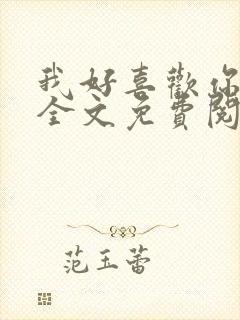 我好喜歡你
全文免費閱
范玉蕾